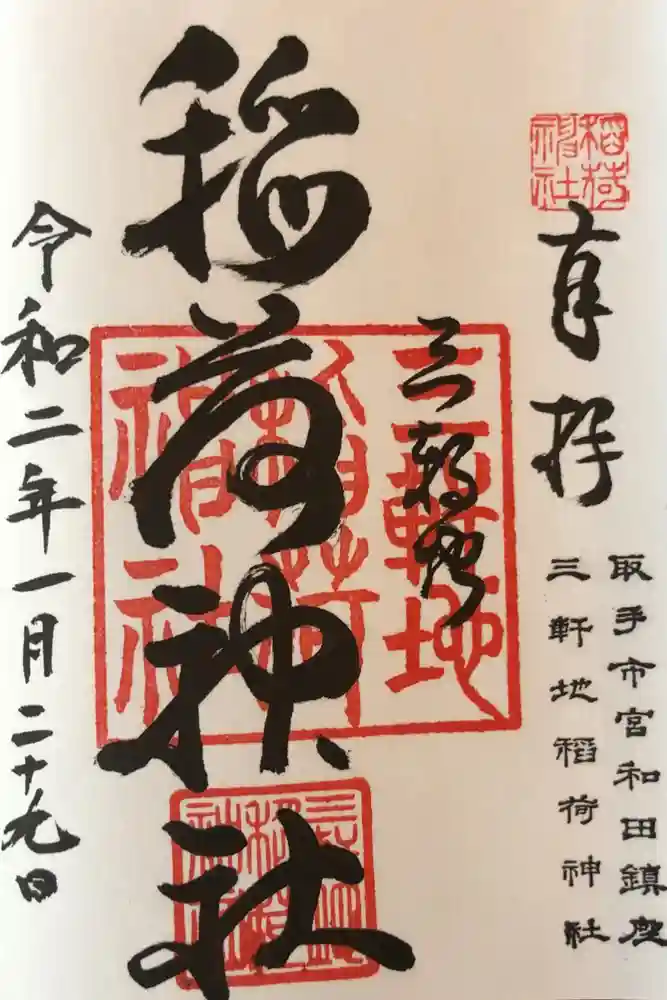 稲荷神社
奉拝
取手市宮和田鎮座
三軒地稲荷神社
三軒地
三軒地稲荷神社
稲荷神社
三軒地稲荷神社
令和二年一月二十九日